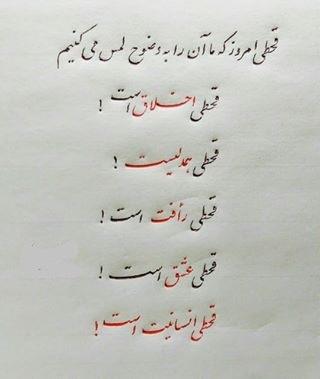 قحطی امروز که ما آن را به وضوح لمس می کنیم
قحطی اخلاق است !
قحطی همدلیست !
قحطی رأفت است !
قحطی عشق است !
قحطی انسانیت است !